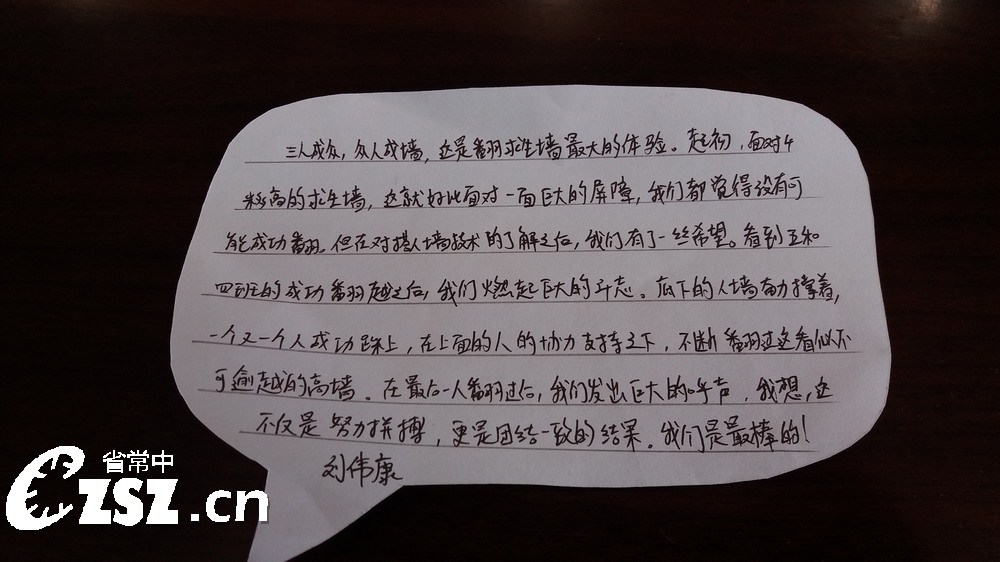 三人成众，众人成墙，这是翻求生墙最大的体验。起初，面对4
米高的求生墙，这就好比面对一面巨大的屏障，我们都觉得没有可
能成功翻。但在对搭人墙技术的了解之后，我们有了一丝希望。看到五和
四班的成功翻越之后，我们燃起巨大的斗志。底下的人墙奋力撑着，
一个又一个人成功踩上，在上面的人的协力支持之下，不断翻过这看似不
可逾越的高墙。在最后一人翻过后，我们发出巨大的呼声，我想，这
不仅是努力拼搏，更是团结一致的结果。我们是最棒的！
刘伟康
省常中
CZSZ.cn